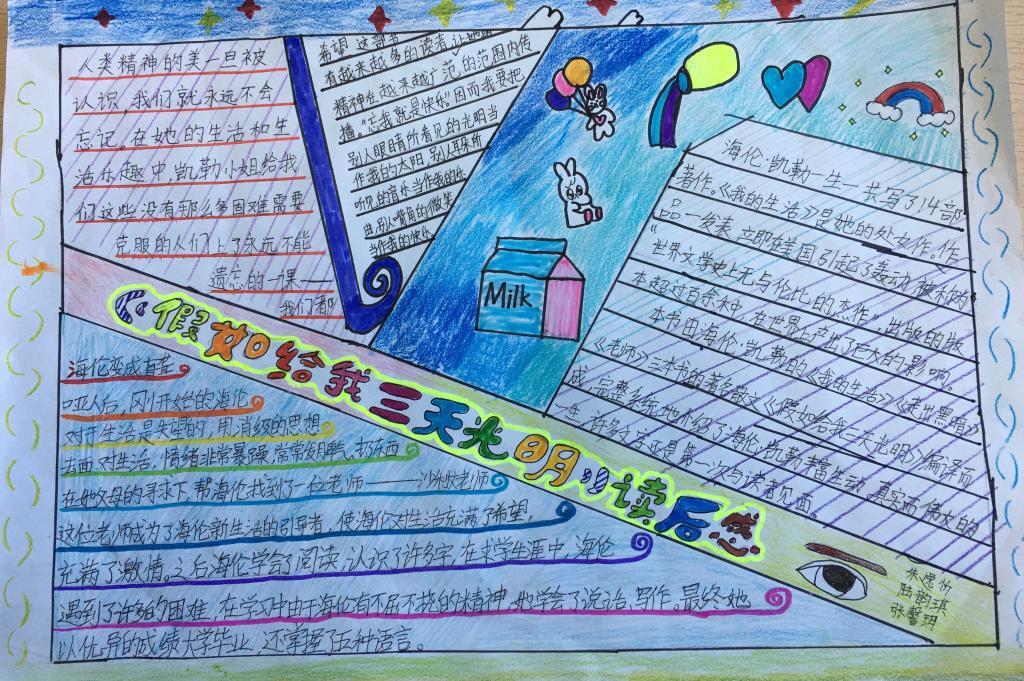 人类精神的美一旦被
认识,我们就永远不会
忘记。在她的生活和生
活乐趣中,凯勒小姐给我
们这些没有那么多困难需要
克服的人们上了永远不能
遗忘的一课——
我们都
希望 这部书 让她的
有越来越多的读者
精神在越来越广范的范围内传
播。“忘我就是快乐”因而我要把
别人眼睛所看见的光明当
作我的太阳 别人耳朵所
听见的音乐当作我的乐
曲 别人嘴角的微笑
当作我的快乐
Milk
海伦·凯勒一生一共写了14部
著作。《我的生活》是她的处女作。作
品一发表 立即在美国引起了轰动,被称为
“世界文学史上无与伦比的杰作”,出版的版
本超过百余种,在世界上产生了巨大的影响。
本书由海伦·凯勒的《我的生活》《走出黑暗》
《老师》三本书的著名散文《假如给我三天光明》编译而
成,完整系统地介绍了海伦·凯勒丰富生动、真实而伟大的
一生,许多文字还是第一次与读者见面。
《假如给我三天光明》读后感
海伦变成盲聋
哑人后,刚开始的海伦
对于生活是失望的,用消极的思想
去面对生活,情绪非常暴躁,常常发脾气、扔东西
在她父母的寻求下,帮海伦找到了一位老师——沙利文老师
这位老师成为了海伦新生活的引导者,使海伦对生活充满了希望,
充满了激情。之后海伦学会了阅读,认识了许多字,在求学生涯中,海伦
遇到了许多的困难,在学习中由于海伦有不屈不挠的精神,她学会了说话、写作。最终她
以优异的成绩大学毕业,还掌握了五种语言。
朱逸份
陆韵琪
张馨玥